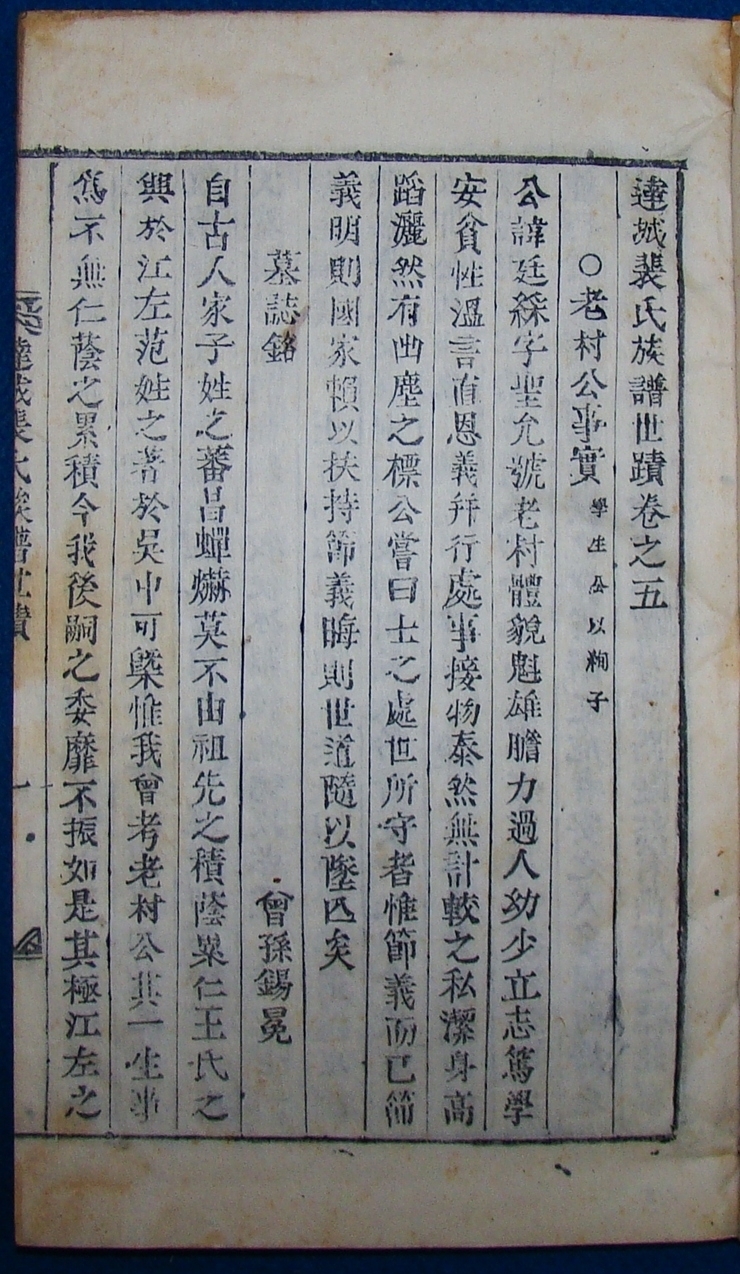 達城裴氏族譜世蹟卷之五
○老村公事實 學生公以絢子
公諱廷綵字聖允號老村體貌魁雄膽力過人幼少立志篤學
安貧性溫言直恩義并行處事接物泰然無計較之私潔身高
蹈灑然有出塵之標公嘗曰士之處世所守者惟節義而已節
義明則國家賴以扶持節義晦則世道隨以墜亾矣
墓誌銘 曾孫錫冕
自古人家子姓之蕃昌蟬爀莫不由祖先之積蔭累仁王氏之
興於江左范姓之著於吳中可槩惟我曾考老村公其一生事
爲不無仁蔭之累積今我後嗣之委靡不振如是其極江左之
達城裴氏族譜世蹟 一